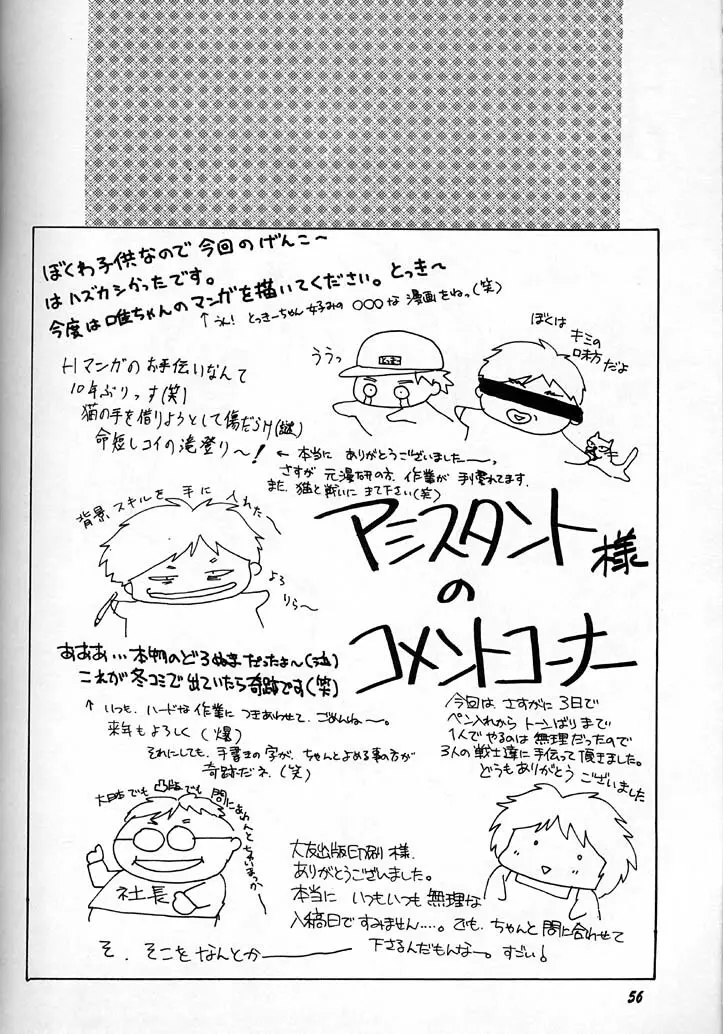 ぼくわ子供なので今回のげんこ～
はハズカシかったです。
今度は唯ちゃんのマンガを描いてください。とっき～
↑うん！とっきーちゃん好みの○○○な漫画をねっ(笑)
ううっ
ぼくは
キミの
味方だよ
Hマンガのお手伝いなんて
10年ぶりっす(笑)
猫の手を借りようとして傷だらけ(謎)
命短しコイの滝登り～！
←本当に ありがとうございました――っ
さすが 元漫研の方、作業が手慣れてます。
また、猫と戦いに きて下さい(笑)
背景スキルを手に入れた～
よろ
りら～
アシスタント様
の
コメントコーナー
あああ…本物のどろぬまだったよぉ～(泣)
これが冬コミで出ていたら奇跡です(笑)
↑いつも、ハードな作業につきあわせて、ごめんね～。
来年もよろしく(爆)
それにしても、手書きの字が、ちゃんとよめる事の方が
奇跡だネ(笑)
今回は、さすがに3日で
ペン入れからトーンばりまで
1人でやるのは無理だったので
3人の戦士達に手伝って頂きました。
どうもありがとう ございました
大日本でも凸版でも間にあわんとちゃいまっか～
社長
大友出版印刷様、
ありがとうございました。
本当に いつもいつも無理な
入稿日ですみません……。でも、ちゃんと間に合わせて
下さるんだもんなー。すごい！
そ、そこをなんとか――――
56